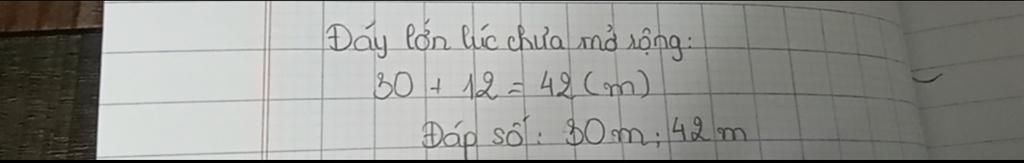 Đáy lớn lúc chưa mở rộng:
30 + 12 = 42 (m)
Đáp số: 30m; 42m